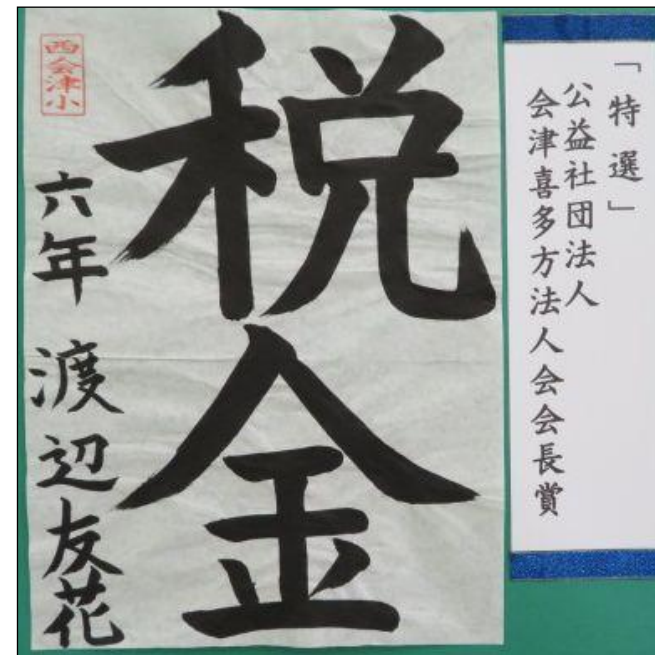 「特選」
公益社団法人
会津喜多方法人会会長賞
税金
西会津小
六年 渡辺友花